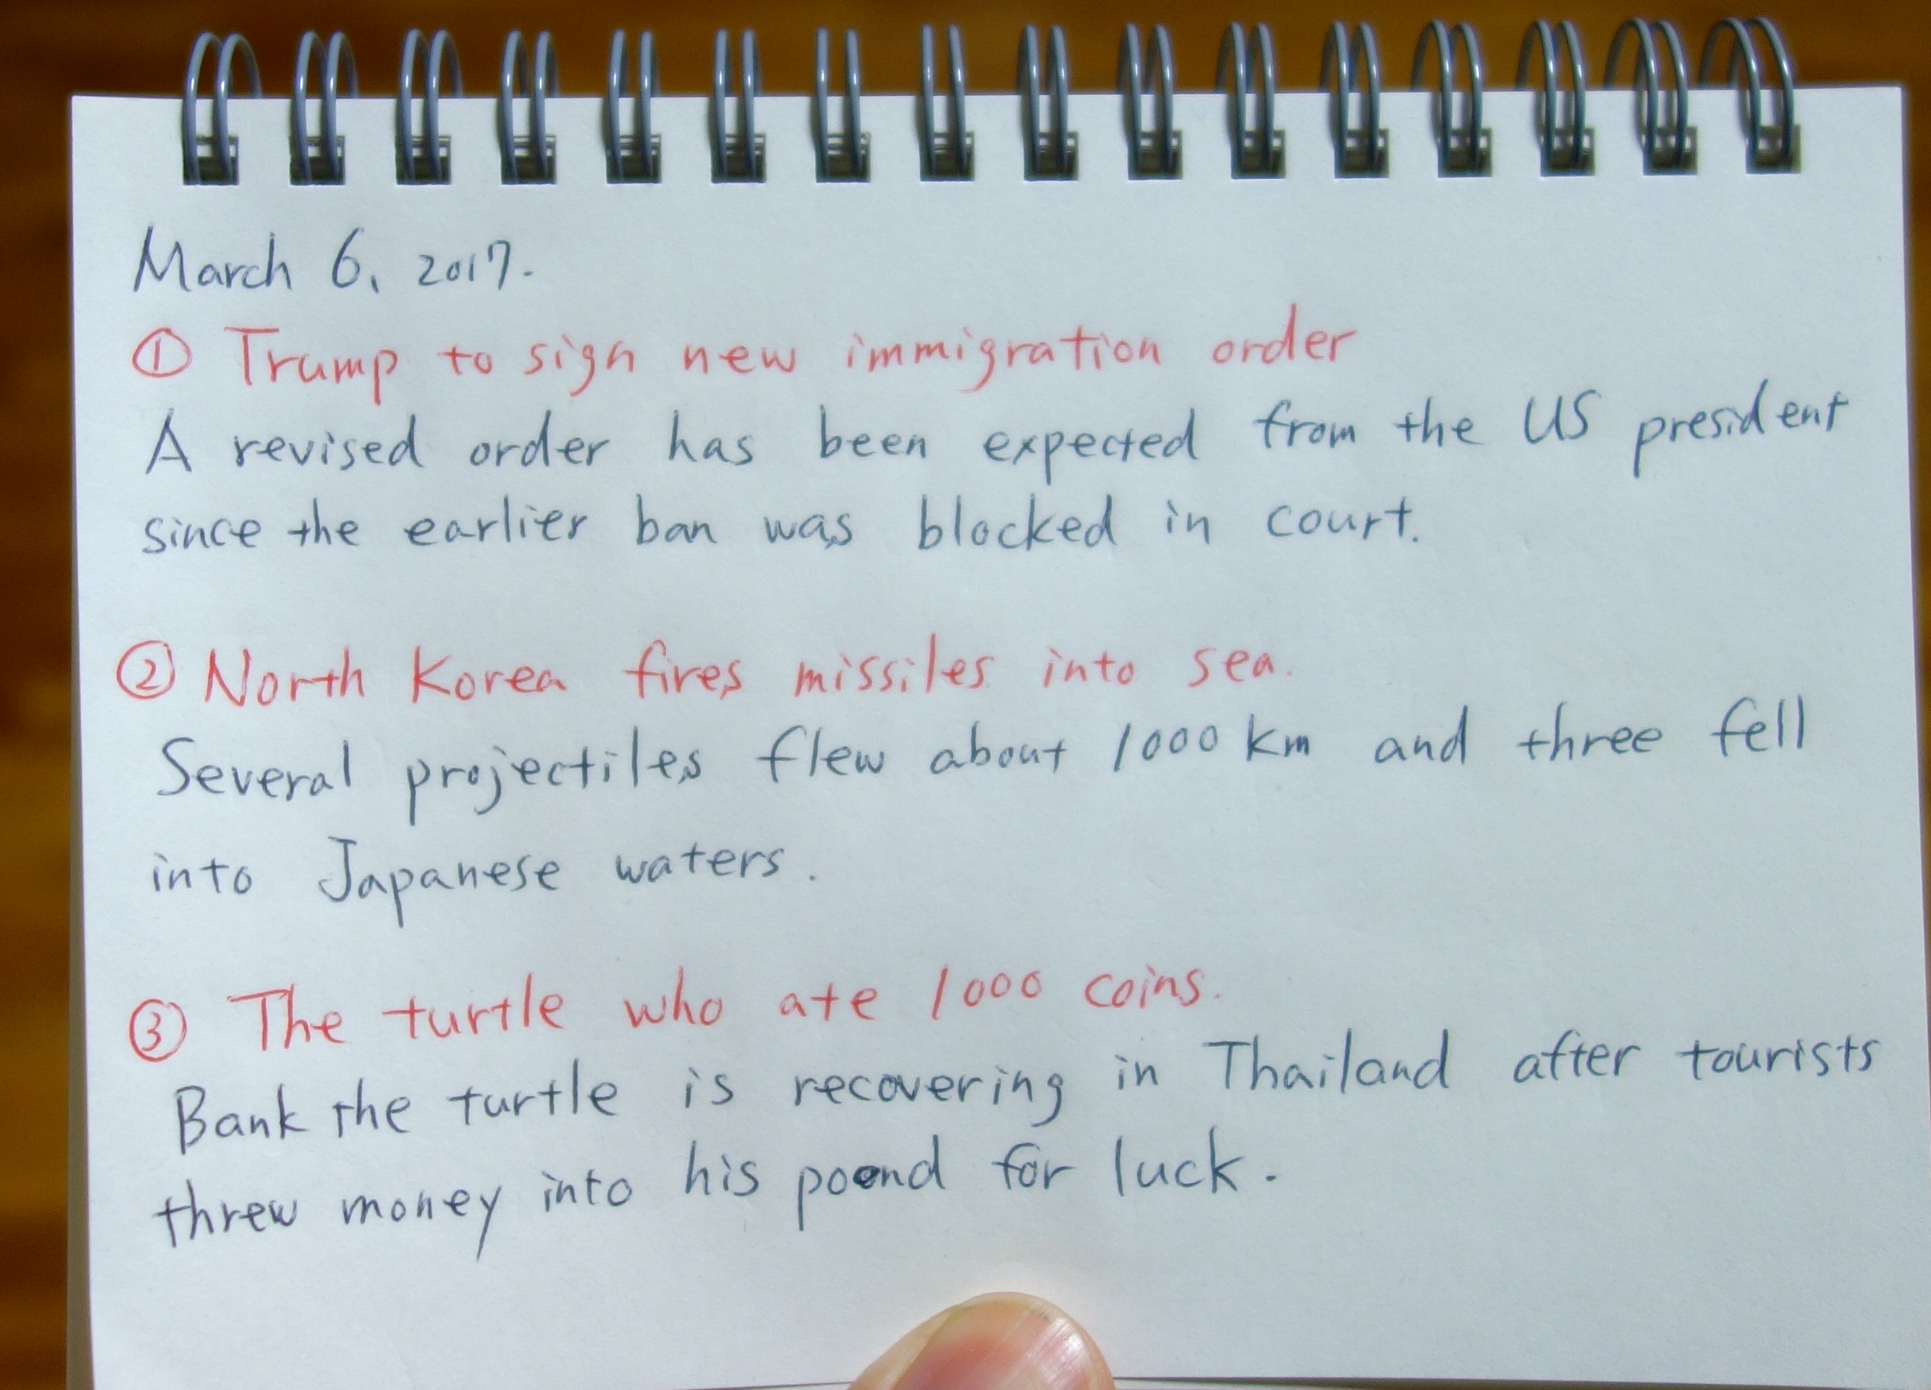 March 6, 2017.
① Trump to sign new immigration order
A revised order has been expected from the US president
since the earlier ban was blocked in court.
② North Korea fires missiles into sea.
Several projectiles flew about 1000 km and three fell
into Japanese waters.
③ The turtle who ate 1000 coins.
Bank the turtle is recovering in Thailand after tourists
threw money into his poond for luck.